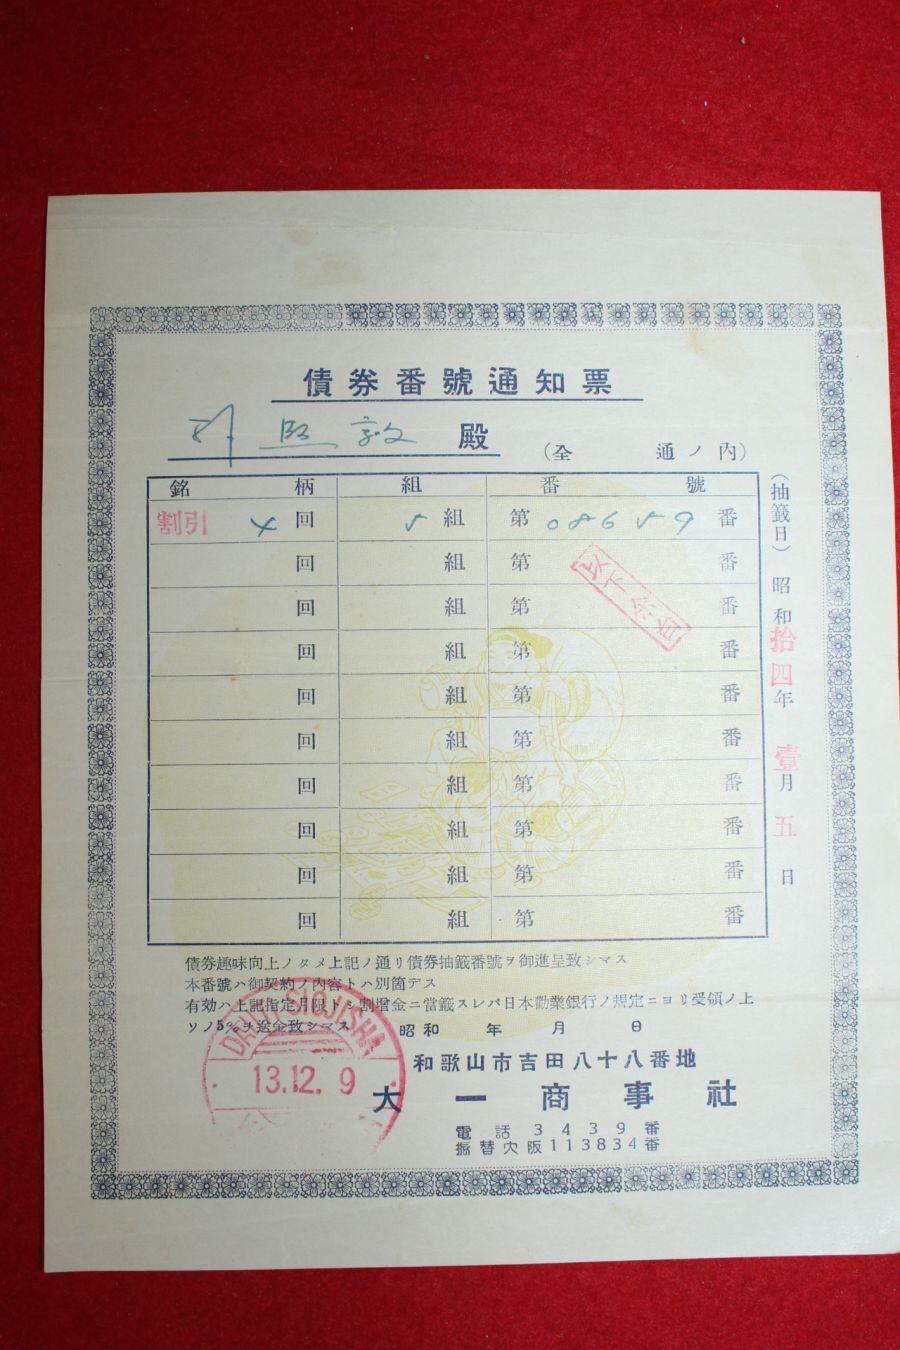 債券番號通知票
照敦 殿
(全 通ノ內)
銘柄 組 番號
割引 4 回 5 組 第 08659 番
以下余白
回 組 第 番
回 組 第 番
回 組 第 番
回 組 第 番
回 組 第 番
回 組 第 番
回 組 第 番
回 組 第 番
回 組 第 番
(抽籤日) 昭和拾四年 壹月 五 日
債券趣味向上ノタメ上記ノ通リ債券抽籤番號ヲ御進呈致シマス
本番號ハ御契約ノ內容トハ別箇デス
有効ハ上記指定月限トシ割增金ニ當籤スレバ日本勸業銀行ノ規定ニヨリ受領ノ上
ソノ5%ヲ送金致シマス
昭和 年 月 日
和歌山市吉田八十八番地
大一商事社
電話3439番
振替大阪113834番
DAIITI SIOJISHA
13.12.9